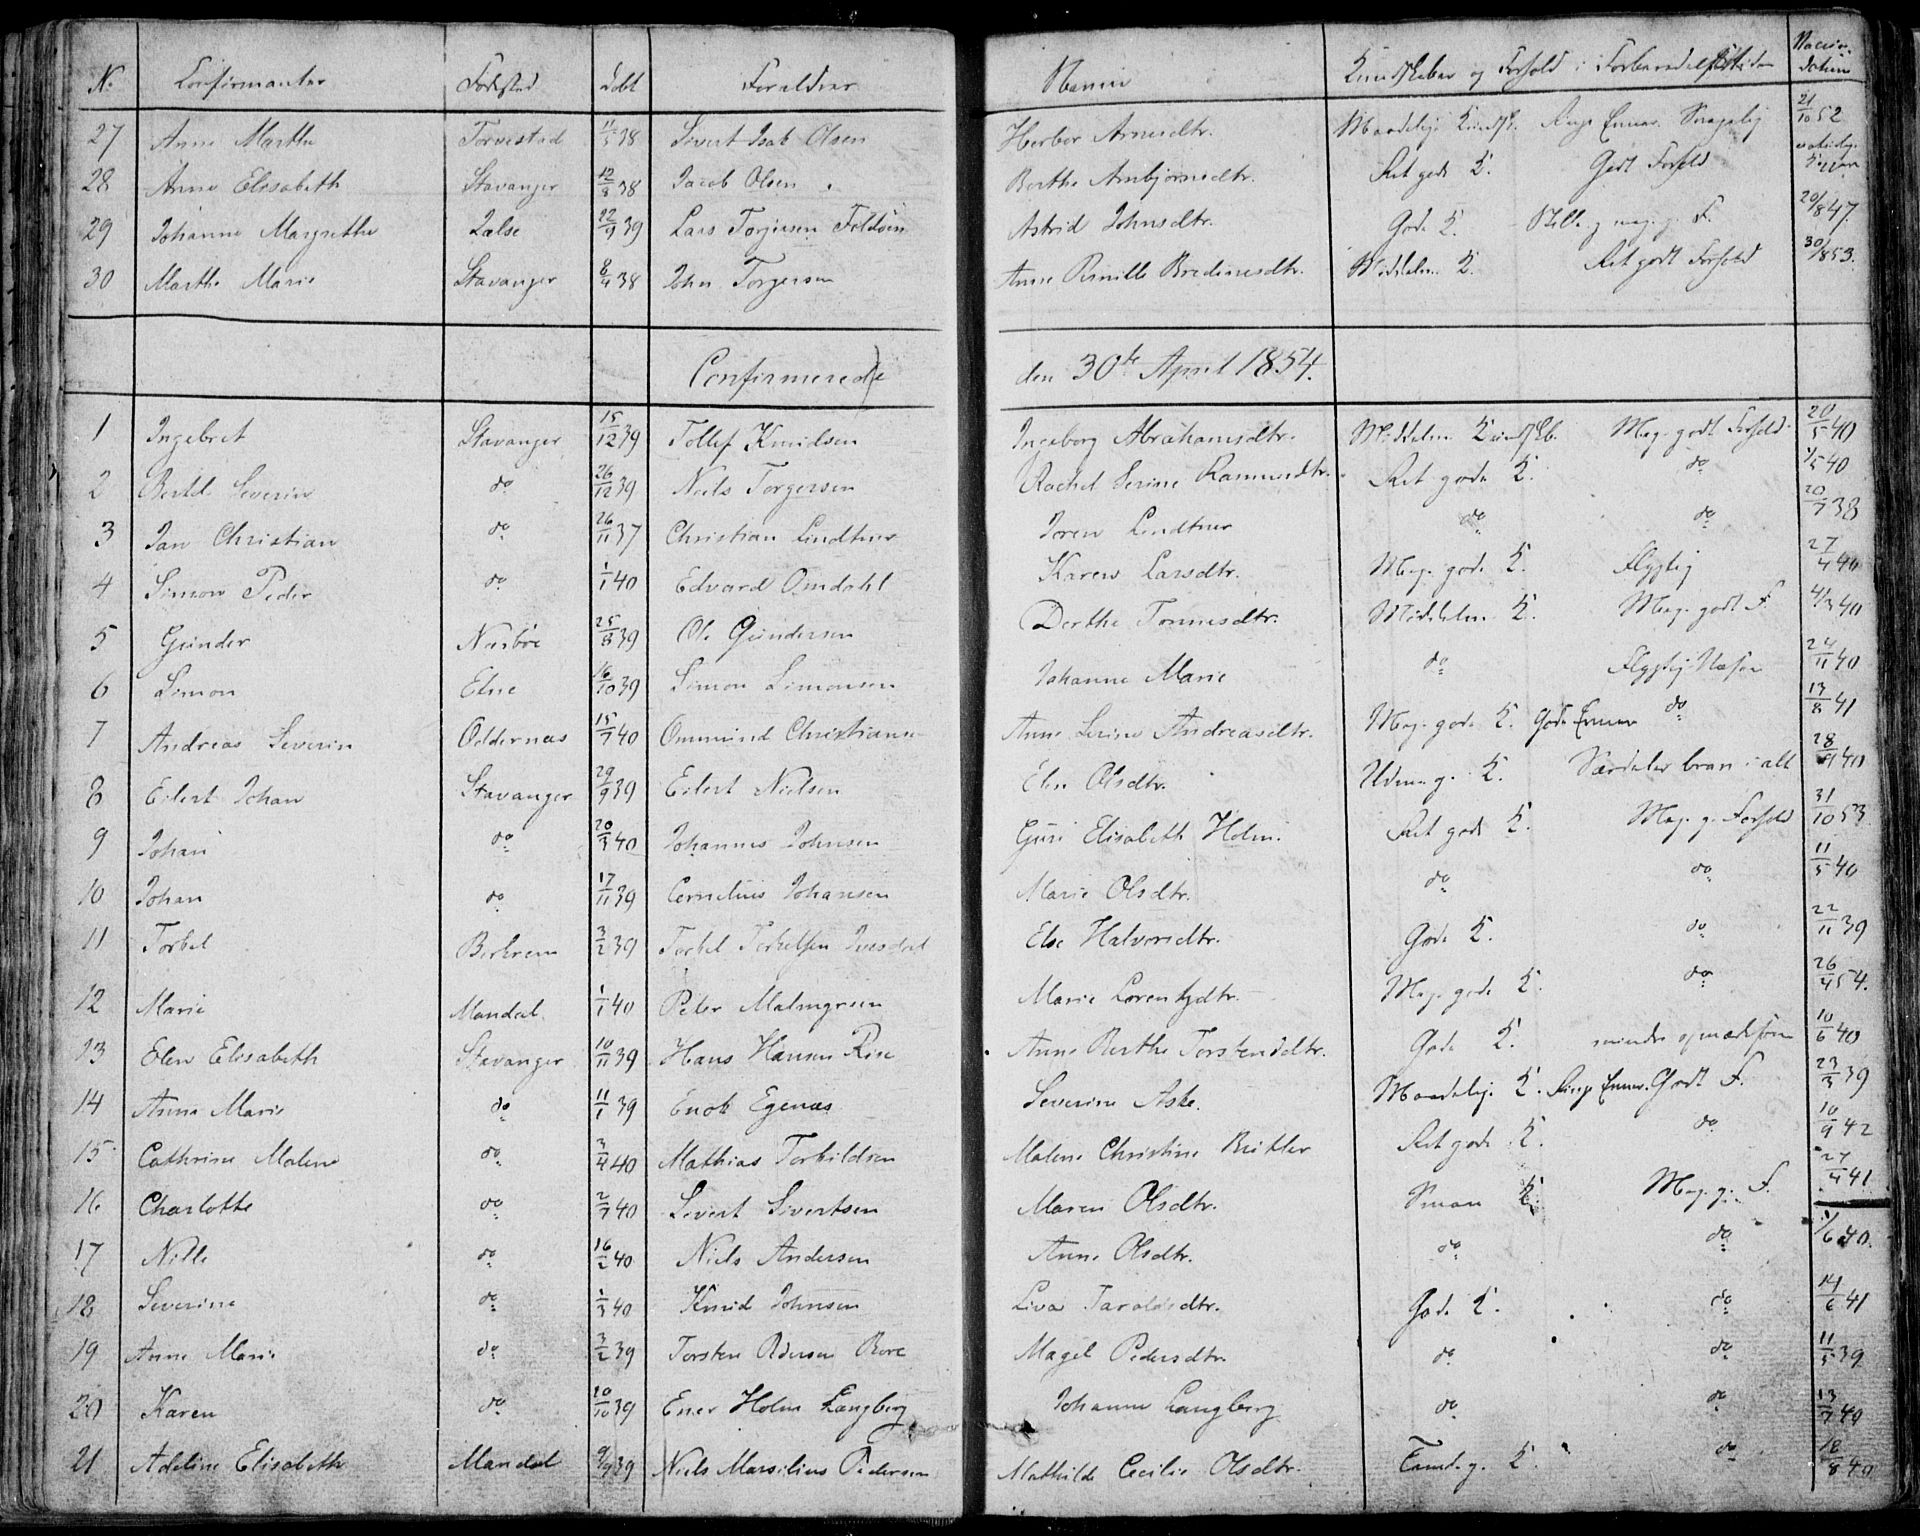 No. Confirmanter Fødested Døbt Forældre Navne Kundskaber og Forhold i Forberedelsestiden Vaccinationen
27 Anne Marthe Torvestad 11/5 38 Sivert Isak Olsen Herbor Arnesdtr. Maadelig Kundsk. 21/10 52
28 Anne Elisabeth Stavanger 12/8 38 Jacob Olsen Berthe Arnbjørnsdtr. Ret gode K. Godt Forhold
29 Johanne Margrethe 22/9 39 Lars Torjersen Foldøen Astrid Johnsdtr. Gode K. 20/8 47.
30 Marthe Marie Stavanger 8/4 38 John Torgersen Anne Pernille Bredinesdtr. Middelm. K. Ret godt Forhold 30/8 53.
Confirmerede den 30te April 1854.
1 Ingebret Stavanger 15/12 39 Tollef Knudsen Ingeborg Abrahamsdtr. Middelm. Kundskb. Meg. godt Forhold. 20/5 40
2 Severin do 26/12 39 Niels Torgersen Rachel Serine Rasmusdtr. Ret gode K. do 1/5 40
3 Jan Christian do 26/11 37 Christian Lindtner Lindtner do do 20/7 38
4 Simon Peder do 1/1 40 Edvard Omdahl Karen Larsdtr. Meg. gode K. Flygtig 27/4 40
5 Gunder Næsbøe 25/8 39 Ole Gundersen Berthe Tønnesdtr. Middelm. K. Meg. godt F. 4/3 40
6 Simon Etne 16/10 39 Simon Simonsen Johanne Marie do 24/11 40
7 Andreas Severin Oddernæs 15/7 40 Ommund Christians Anne Serine Andreasdtr. Meg. gode K. Gode Evner do 13/8 41
8 Eilert Johan Stavanger 29/9 39 Eilert Nielsen Elen Olsdtr. Udm. g. K. Særdeles brav i alt 28/4 40
9 Johan do 20/3 40 Johannes Johnsen Guri Elisabeth Holm. Ret gode K. Meg. g. Forhold 31/10 53
10 Johan do 17/11 39 Cornelius Johansen Marie Olsdtr. do do 11/5 40
11 Torkel Birkrem 3/2 39 Torkel Torkelsen Else Halvorsdtr. Gode K. do 22/11 39
12 Marie Mandal. 1/1 40 Peter Malmgreen Marie Lorentzdtr. Meg. gode K. do 26/4 54.
13 Elen Elisabeth Stavanger 10/11 39 Hans Hansen Rise Anne Berthe Torstensdtr. Gode K. mindre opmærksom 10/6 40
14 Anne Marie do 11/1 39 Enok Egenæs Severine Aske. Maadelig. K. Ringe Evner. Godt F. 23/3 39
15 Cathrine Malene do 3/4 40 Mathias Torkildsen Malene Christine Ret gode K. do 10/9 42
16 Charlotte do 2/7 40 Sivert Sivertsen Maren Olsdtr. Smaa K. Meg. g. F. 27/4 41
17 Nille do 16/2 40 Niels Andersen Anne Olsdtr. do do 1/6 40.
18 Severine do 1/3 40 Knud Johnsen Liva Taraldsdtr. Gode K. do 14/6 41
19 Anne Marie do 3/2 39 Torsten Pedersen Bore Magel Pedersdtr. do do 11/5 39
20 Karen do 10/10 39 Ener Holm Langberg Johanne Langberg do do 13/7 40
21 Adeline Elisabeth Mandal 9/9 39 Niels Marsilius Pedersen Mathilde Cecilie Olsdtr. K. do 18/8 40